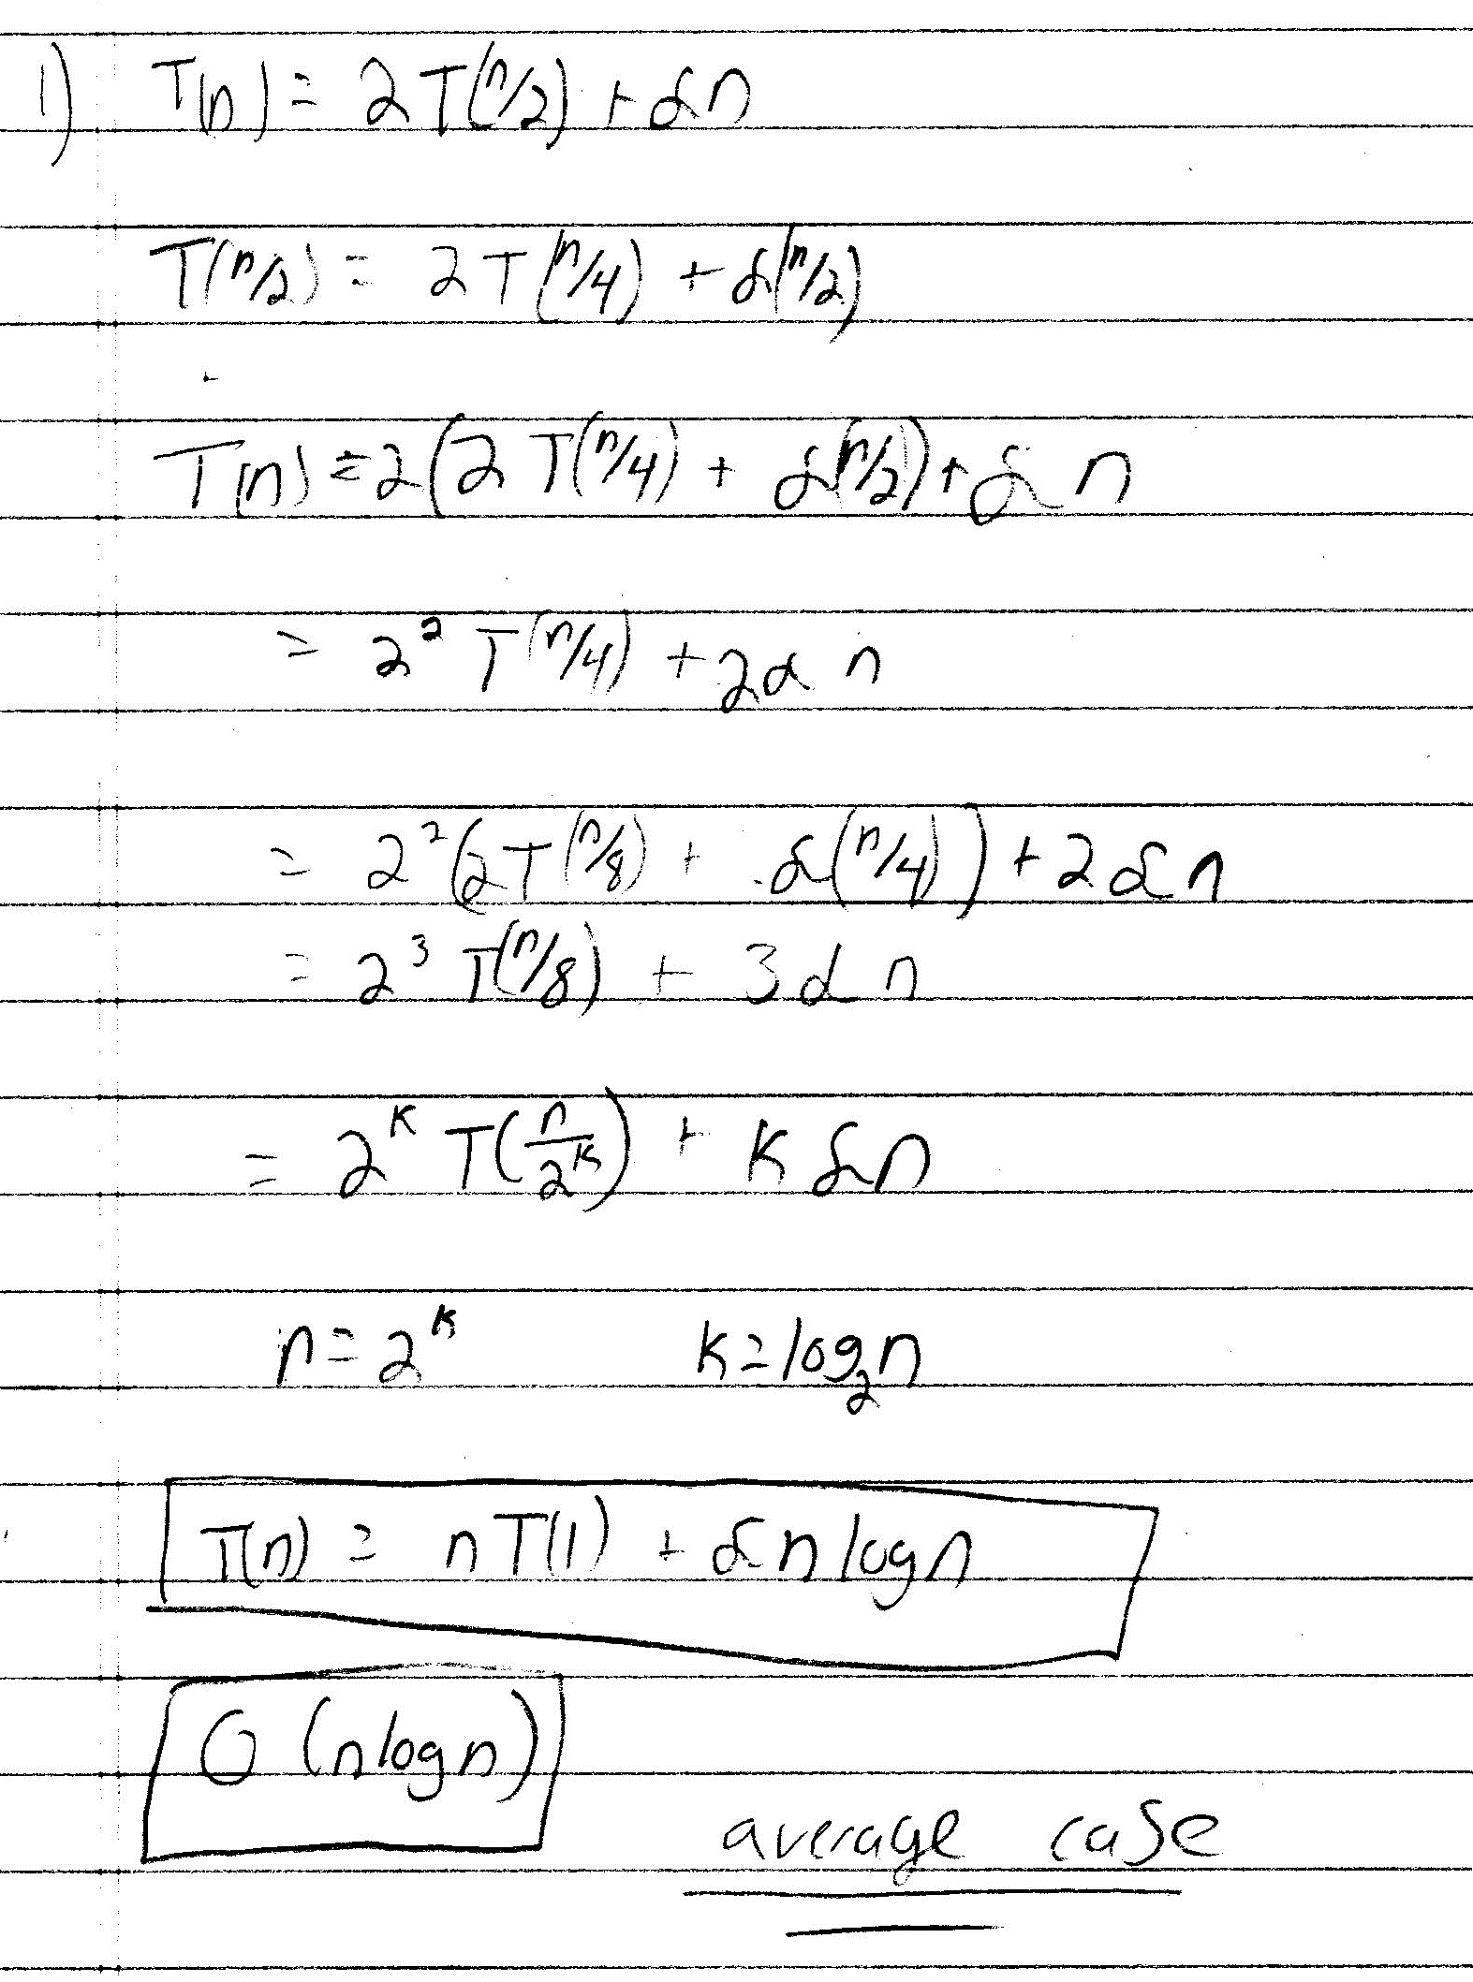 1) T(n) = 2T(n/2) + αn
T(n/2) = 2T(n/4) + α(n/2)
T(n) = 2(2T(n/4) + α(n/2)) + αn
= 2² T(n/4) + 2αn
= 2²(2T(n/8) + α(n/4)) + 2αn
= 2³ T(n/8) + 3αn
= 2^k T(n/2^k) + kαn
n = 2^k k = log₂n
T(n) = nT(1) + αn logn
O(nlogn)
average case